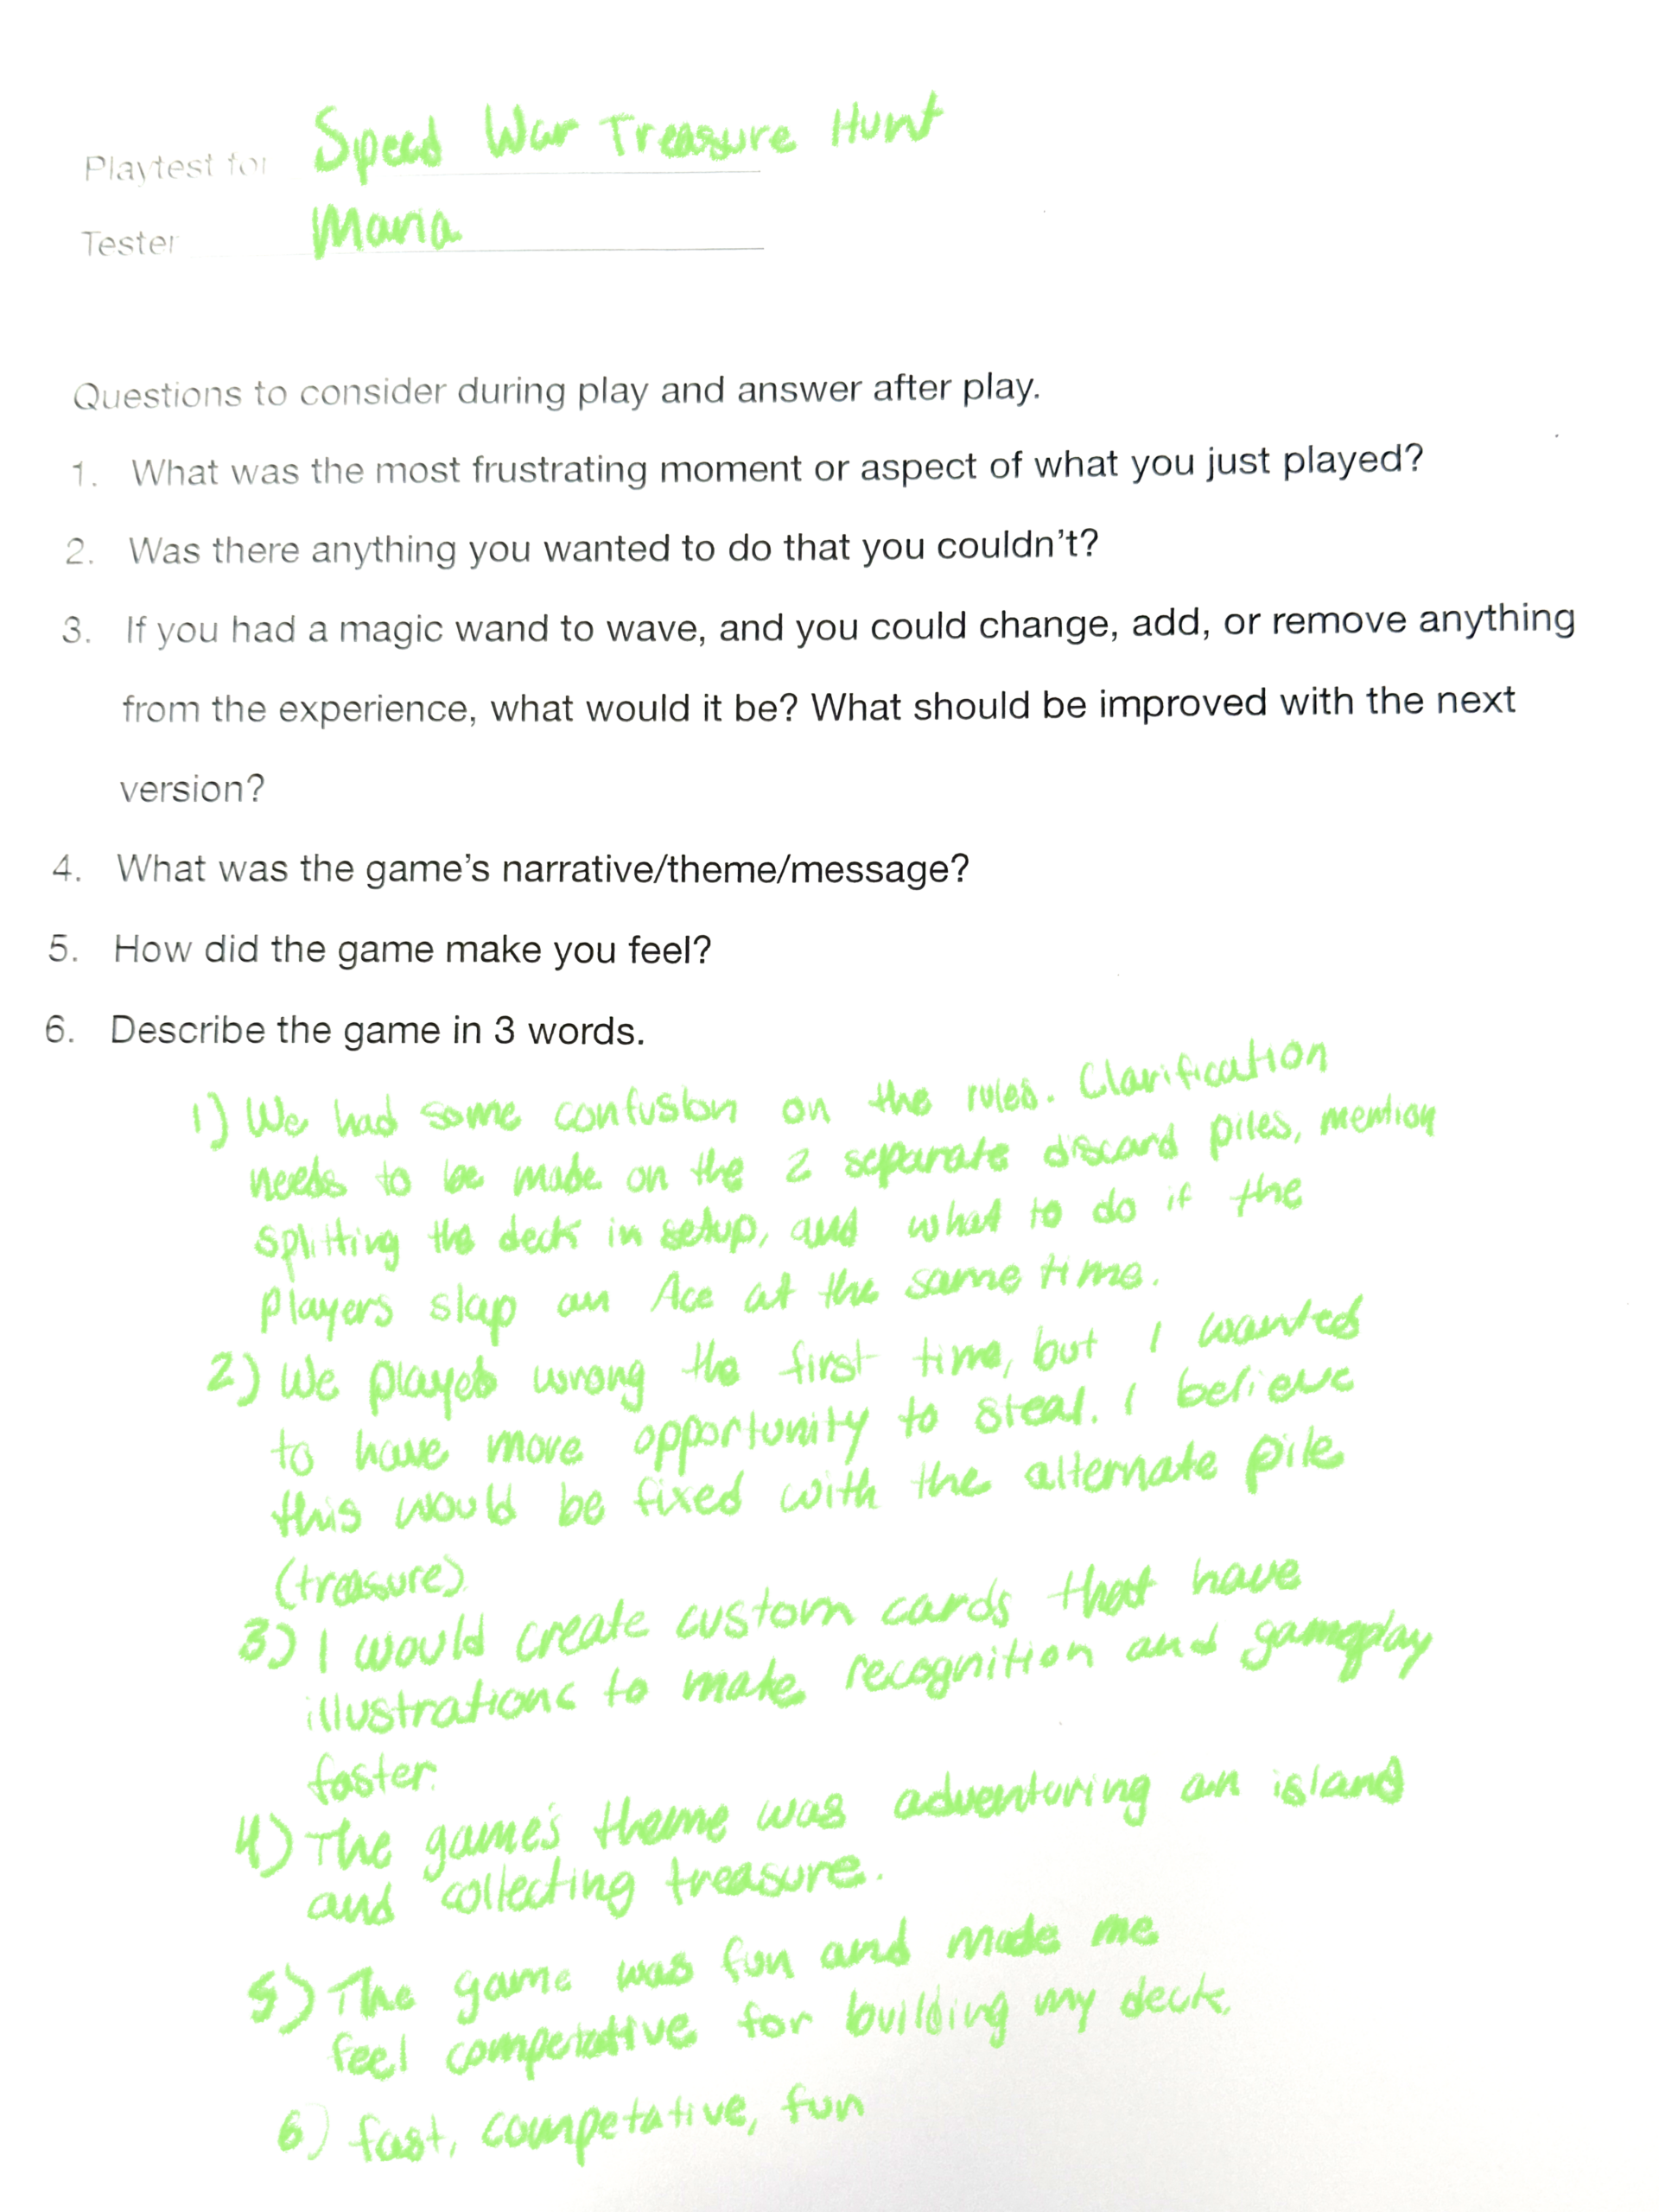 Playtest for Speed War Treasure Hunt
Tester Maria
Questions to consider during play and answer after play.
1. What was the most frustrating moment or aspect of what you just played?
2. Was there anything you wanted to do that you couldn't?
3. If you had a magic wand to wave, and you could change, add, or remove anything
from the experience, what would it be? What should be improved with the next
version?
4. What was the game's narrative/theme/message?
5. How did the game make you feel?
6. Describe the game in 3 words.
1) We had some confusion on the rules. Clarification
needs to be made on the 2 separate discard piles, mention
splitting the deck in setup, and what to do if the
players slap an Ace at the same time.
2) We played wrong the first time, but I wanted
to have more opportunity to steal. I believe
this would be fixed with the alternate pile
(treasure)
3) I would create custom cards that have
illustrations to make recognition and gameplay
faster.
4) The game's theme was adventuring an island
and collecting treasure.
5) The game was fun and made me
feel competative for building my deck.
6) fast, competative, fun